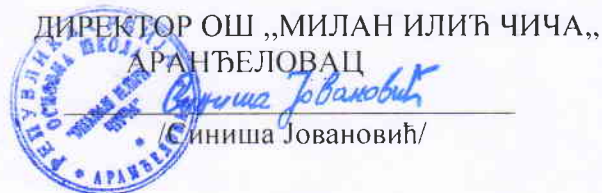 ДИРЕКТОР ОШ ,,МИЛАН ИЛИЋ ЧИЧА,,
АРАНЂЕЛОВАЦ
Синиша Јовановић
/Синиша Јовановић/
ОСНОВНА ШКОЛА